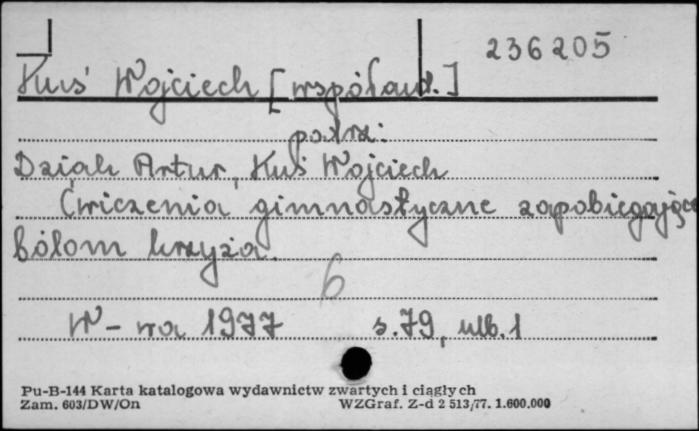 236205
Kuś Wojciech [współaut.]
patrz:
Dziak Artur, Kuś Wojciech
Ćwiczenia gimnastyczne zapobiegające
bólom krzyża.
6
W-wa 1977 s. 79, nlb. 1
Pu-B-144 Karta katalogowa wydawnictw zwartych i ciągłych
Zam. 603/DW/On WZGraf. Z-d 2 513/77. 1.600.000